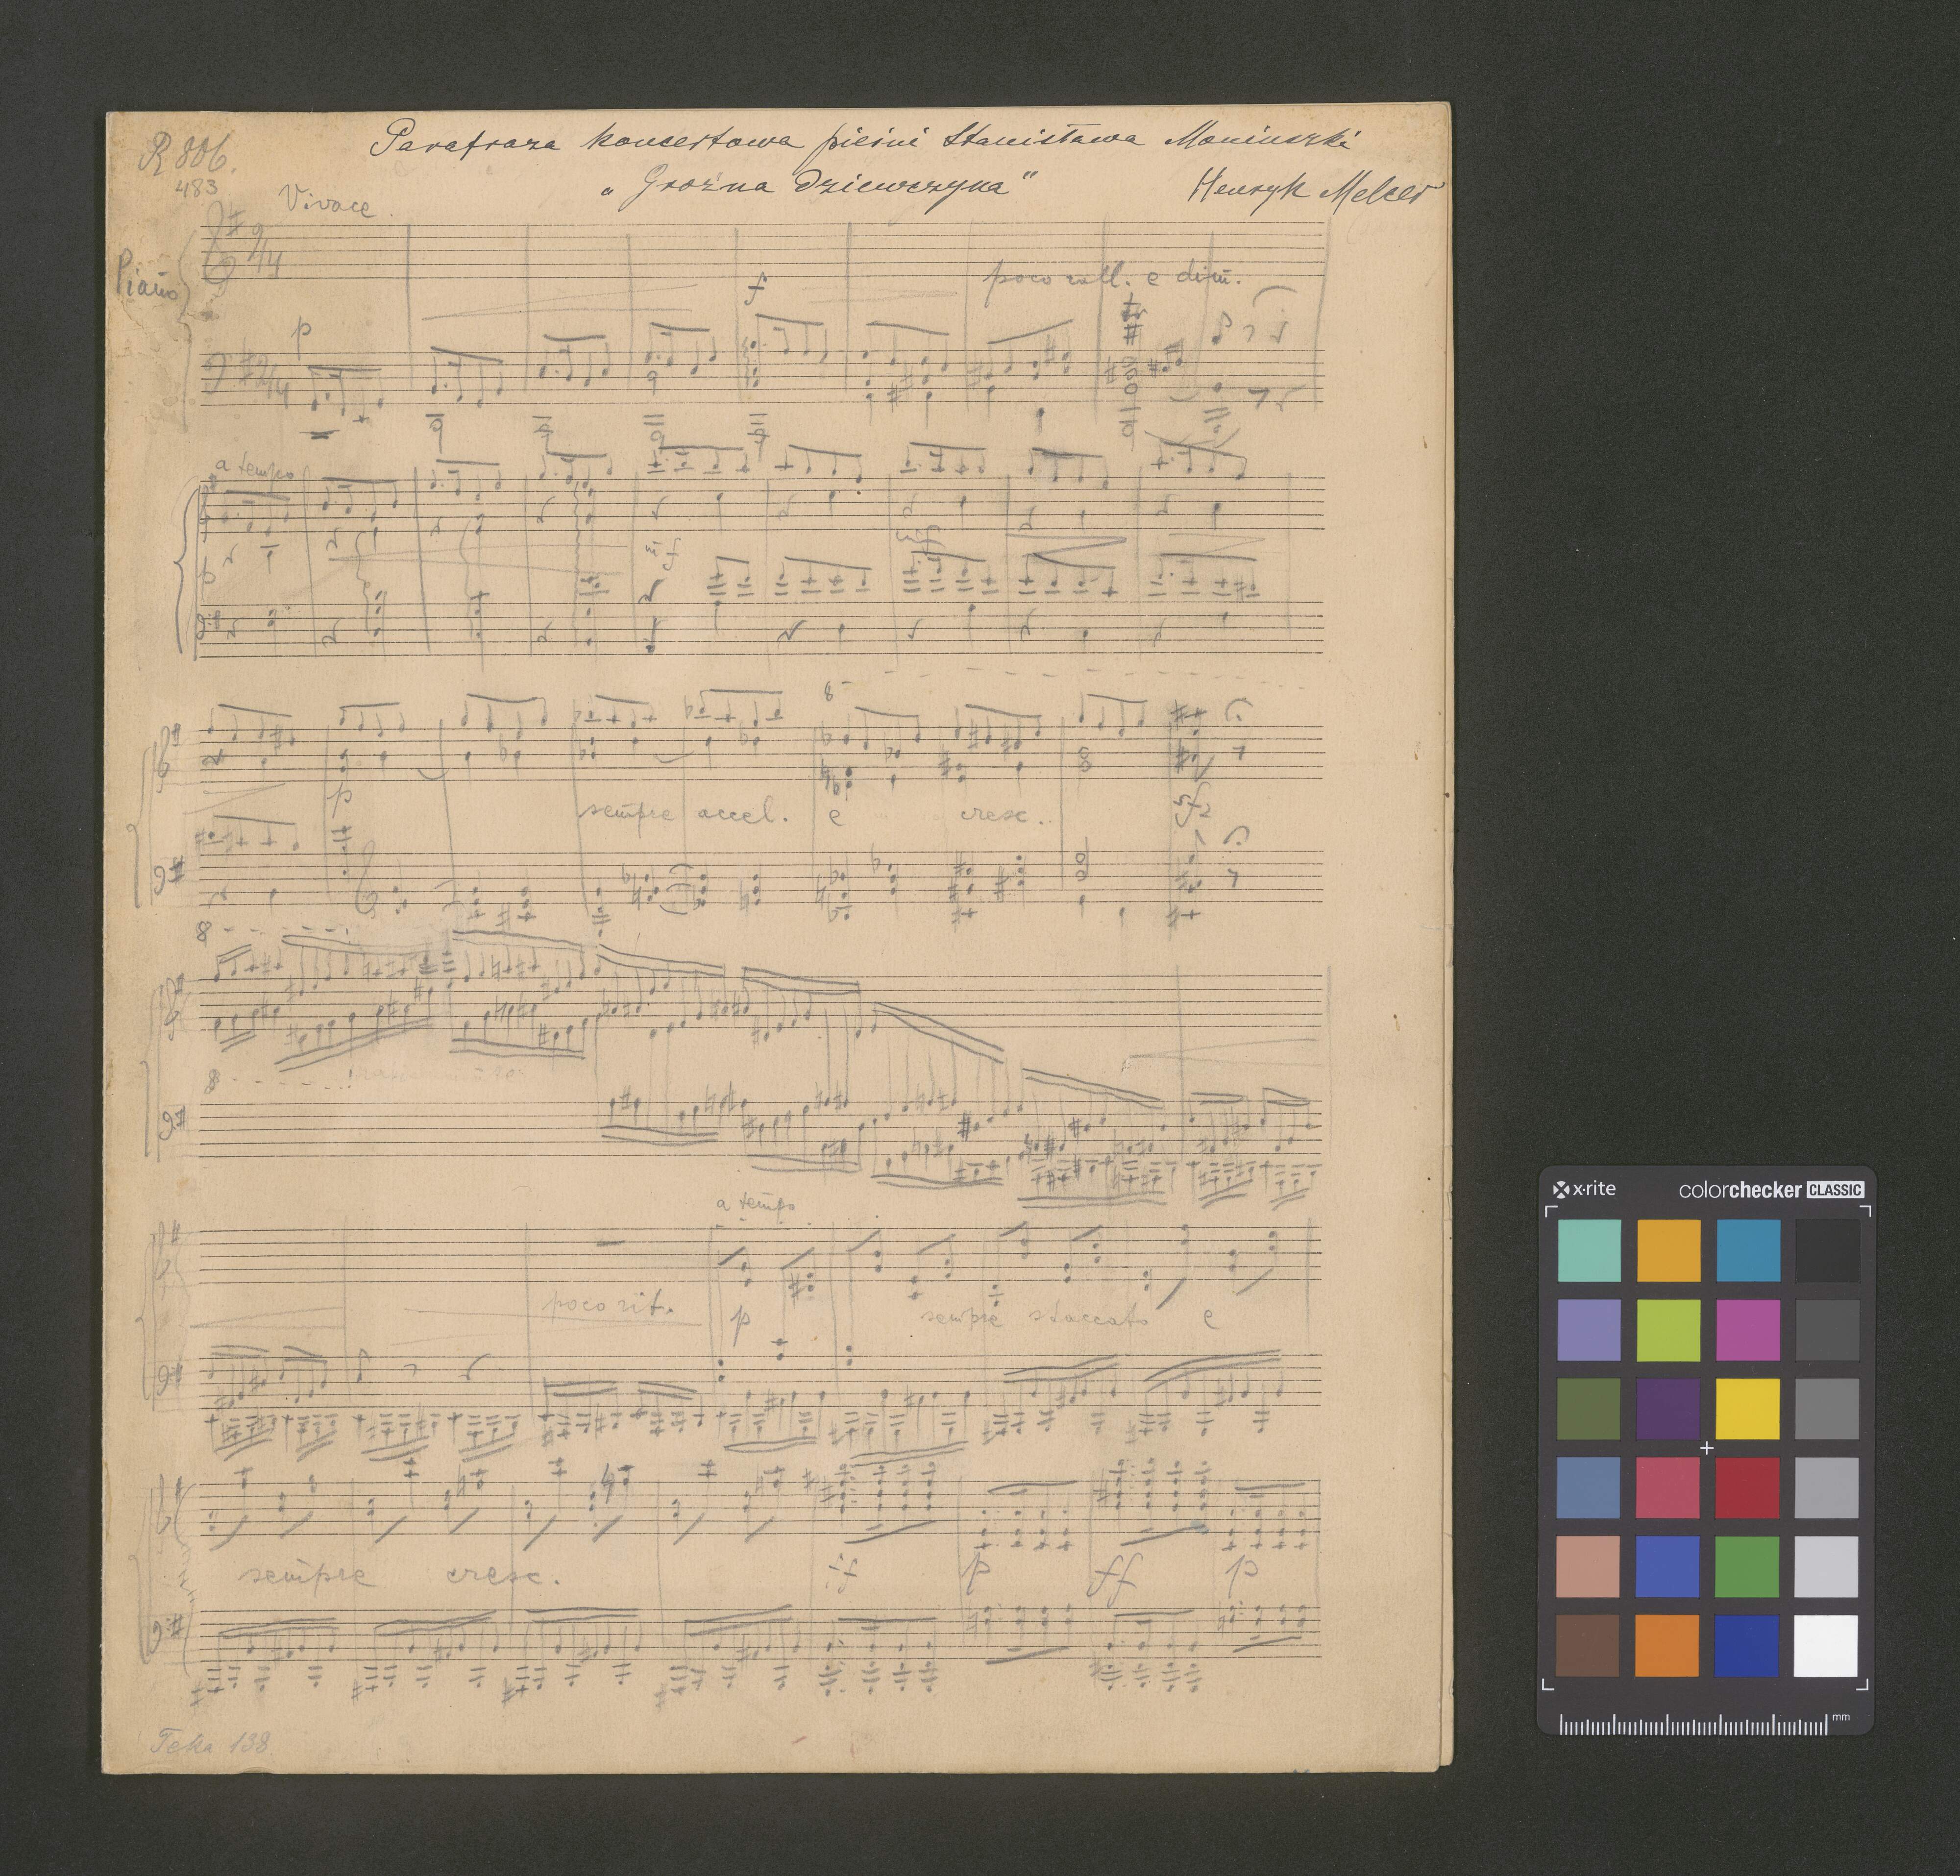 Parafraza koncertowa pieśni Stanisława Moniuszki
R 806.
483
„Groźna Dziewczyna"
Henryk Melcer
Vivace.
Piano
f
poco rall. e dim.
p
a tempo
p
mf
8
p
sempre accel. e cresc.
sfz
8
8
a tempo
poco rit.
p
sempre staccato e
sempre cresc.
ff
p
ff
p
Teka 138
x·rite
colorchecker CLASSIC
mm